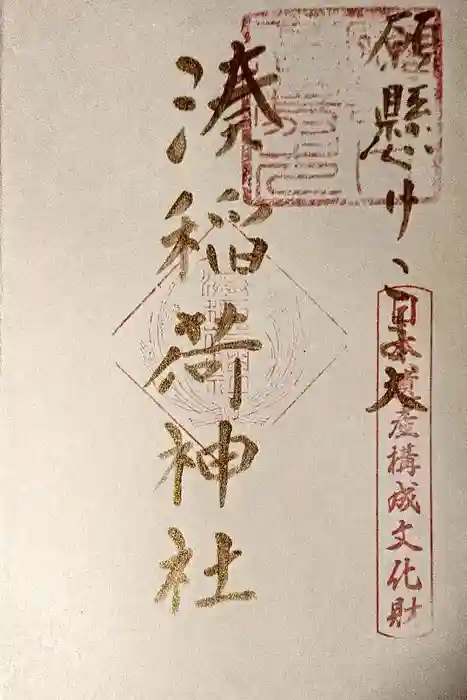 願懸けこま犬
日本遺産構成文化財
湊稲荷神社